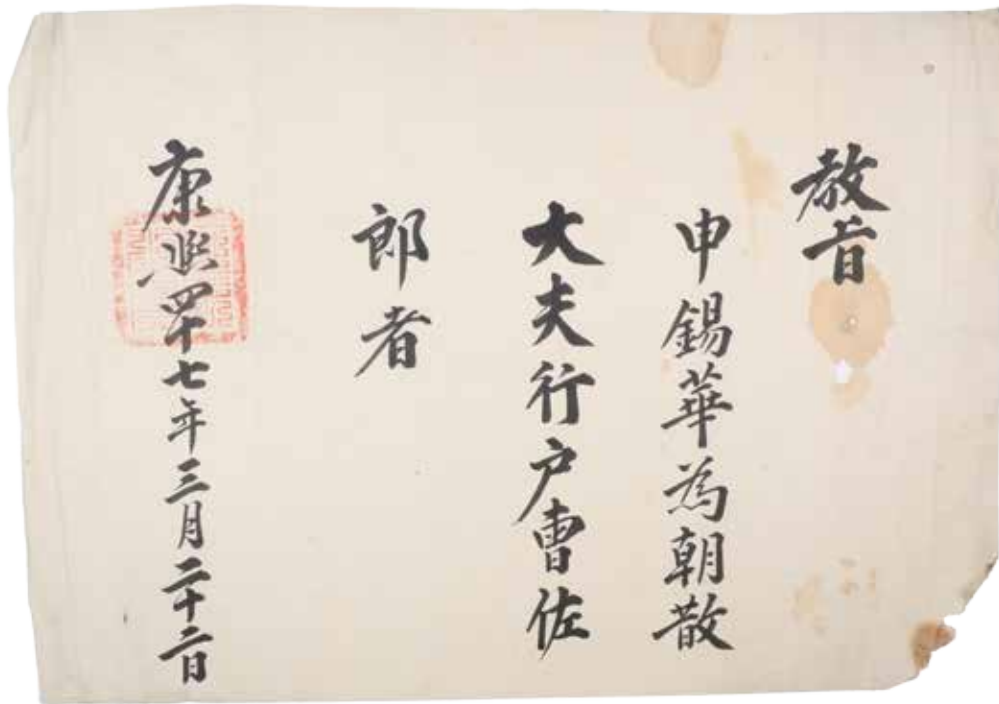 教旨
申錫華為朝散
大夫行户曺佐
郎者
康熙四十七年三月二十二日